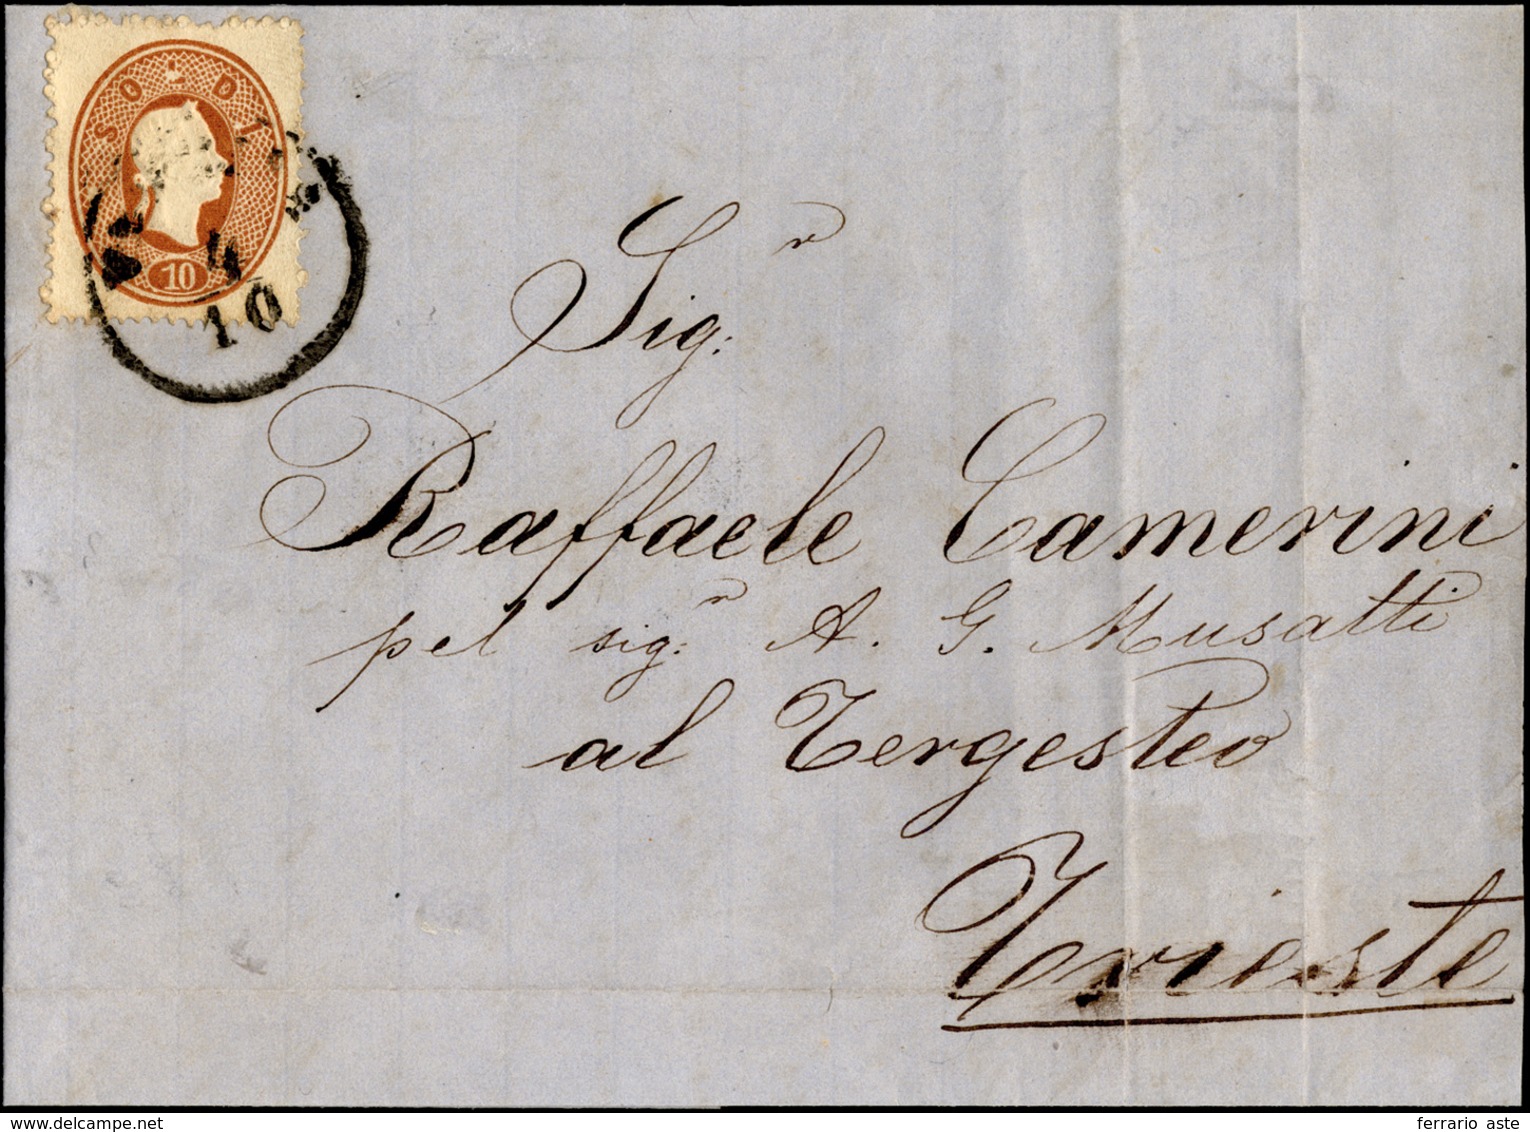 SOLDI
10
4
10
Sig:r
Raffaele Camerini
pel sig:r A. G. Musatti
al Tergesteo
Trieste
ferrario aste